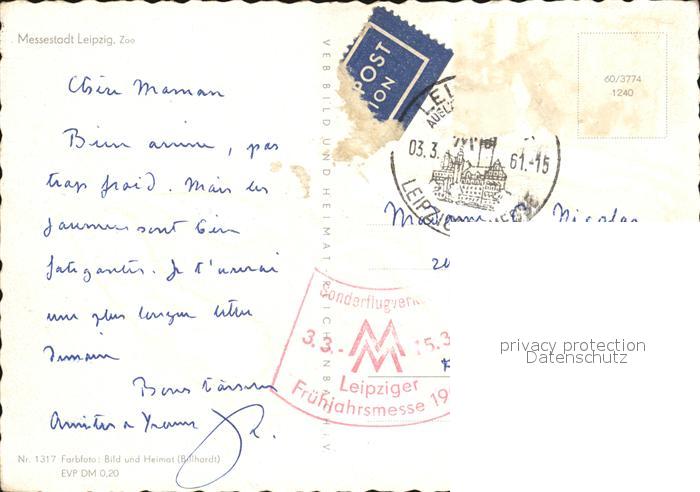 Messestadt Leipzig, Zoo
Chère Maman
Bien arrivé, pas
trop froid. Mais les
journées sont bien
fatigantes. Je t'enverrai
une plus longue lettre
demain
Bons baisers
Amitiés a Yvonne
VEB BILD UND HEIMAT REICHENBACH
POST
ION
60/3774
1240
03.3. 61.-15
LEIPZIGER MESSE
Madame Nicolas
20
Sonderflugverk
3.3.- 15.3
MM
Leipziger
Frühjahrsmesse 19
Nr. 1317 Farbfoto: Bild und Heimat (Billhardt)
EVP DM 0,20
privacy protection
Datenschutz